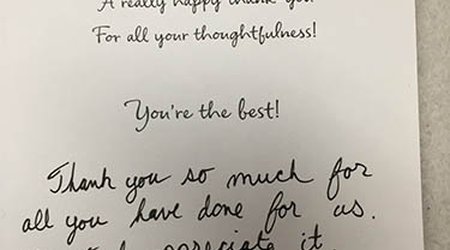 A really happy thank you!
For all your thoughtfulness!
You're the best!
Thank you so much for
all you have done for us.
it.